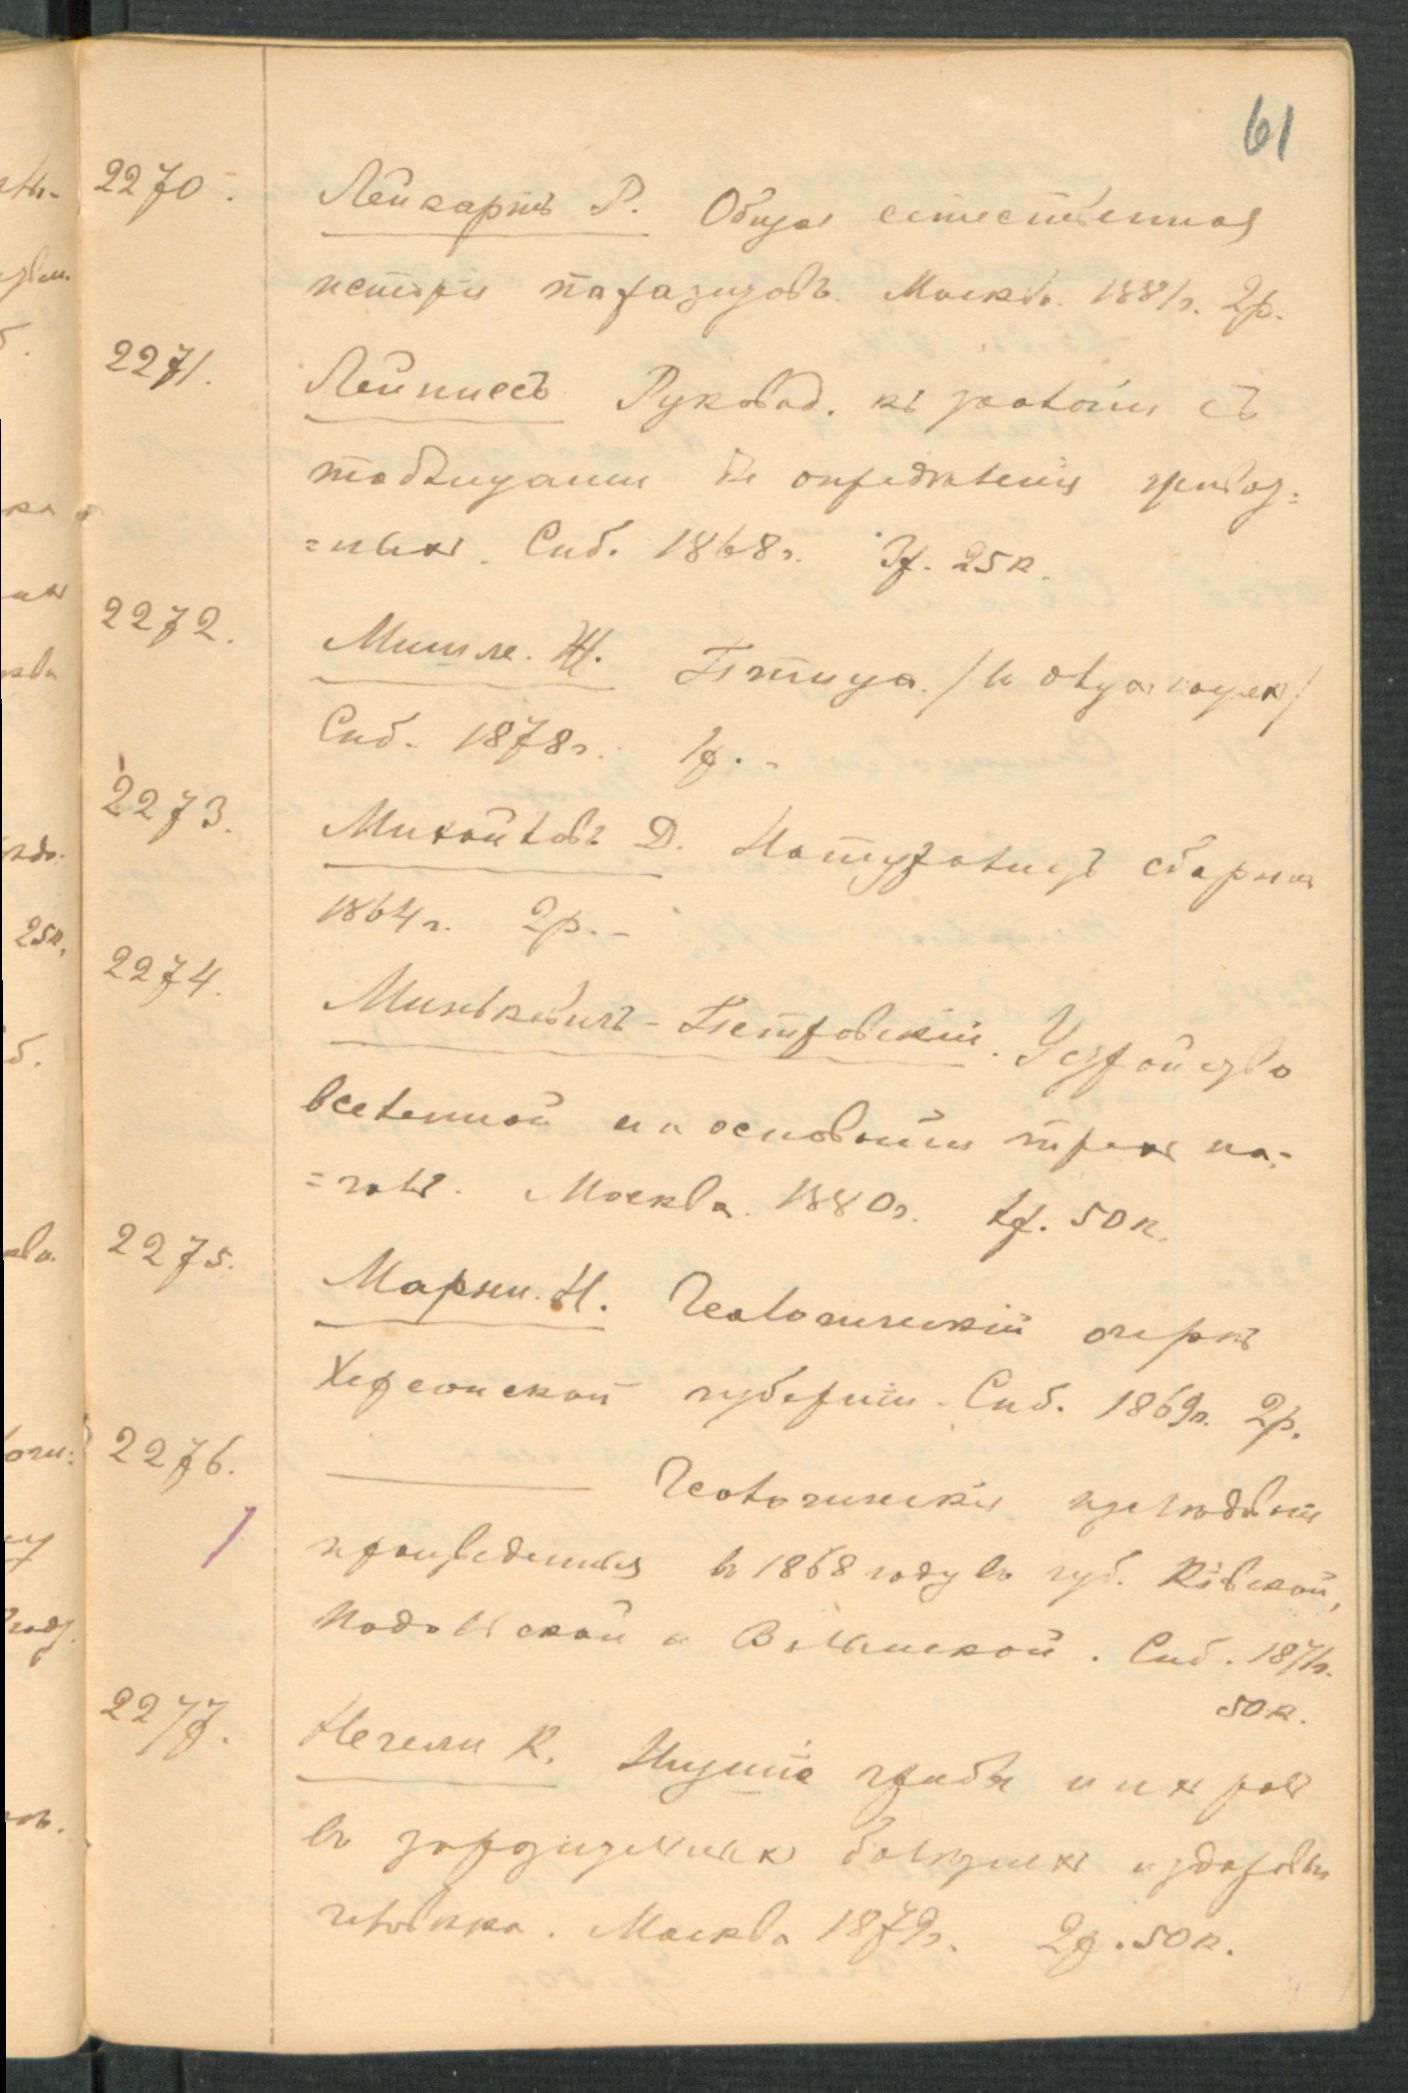 61
2270. Лейкартъ Р. Общая естественная
исторія паразитовъ. Москва. 1881г. 2р.
2271. Лейнисъ Руковод. къ зоологіи съ
таблицами для опредѣленія живот=
=ныхъ. Спб. 1868г. 3р. 25к.
2272. Мишле. Ж. Птица.
Спб. 1878г. 1р. -
2273. Михайловъ Д. Натуралистъ сборникъ
1864г. 2р. -
2274. Минькевичъ-Петровскій. Устройство
вселенной на основаніи трехъ на=
=чалъ. Москва. 1880г. 1р. 50к.
2275. Маркн. Н. Геологическій очеркъ
Херсонской губерніи. Спб. 1869г. 2р.
2276. ——— Геологическія изслѣдован
произведенныя въ 1868 году въ губ. Кіевской,
Подольской и Волынской. Спб. 1871г.
50к.
2277. Негели К. Низшіе грибы и ихъ роль
въ заразительныхъ болѣзняхъ и здоровьи
человѣка. Москва 1879г. 2р. 50к.